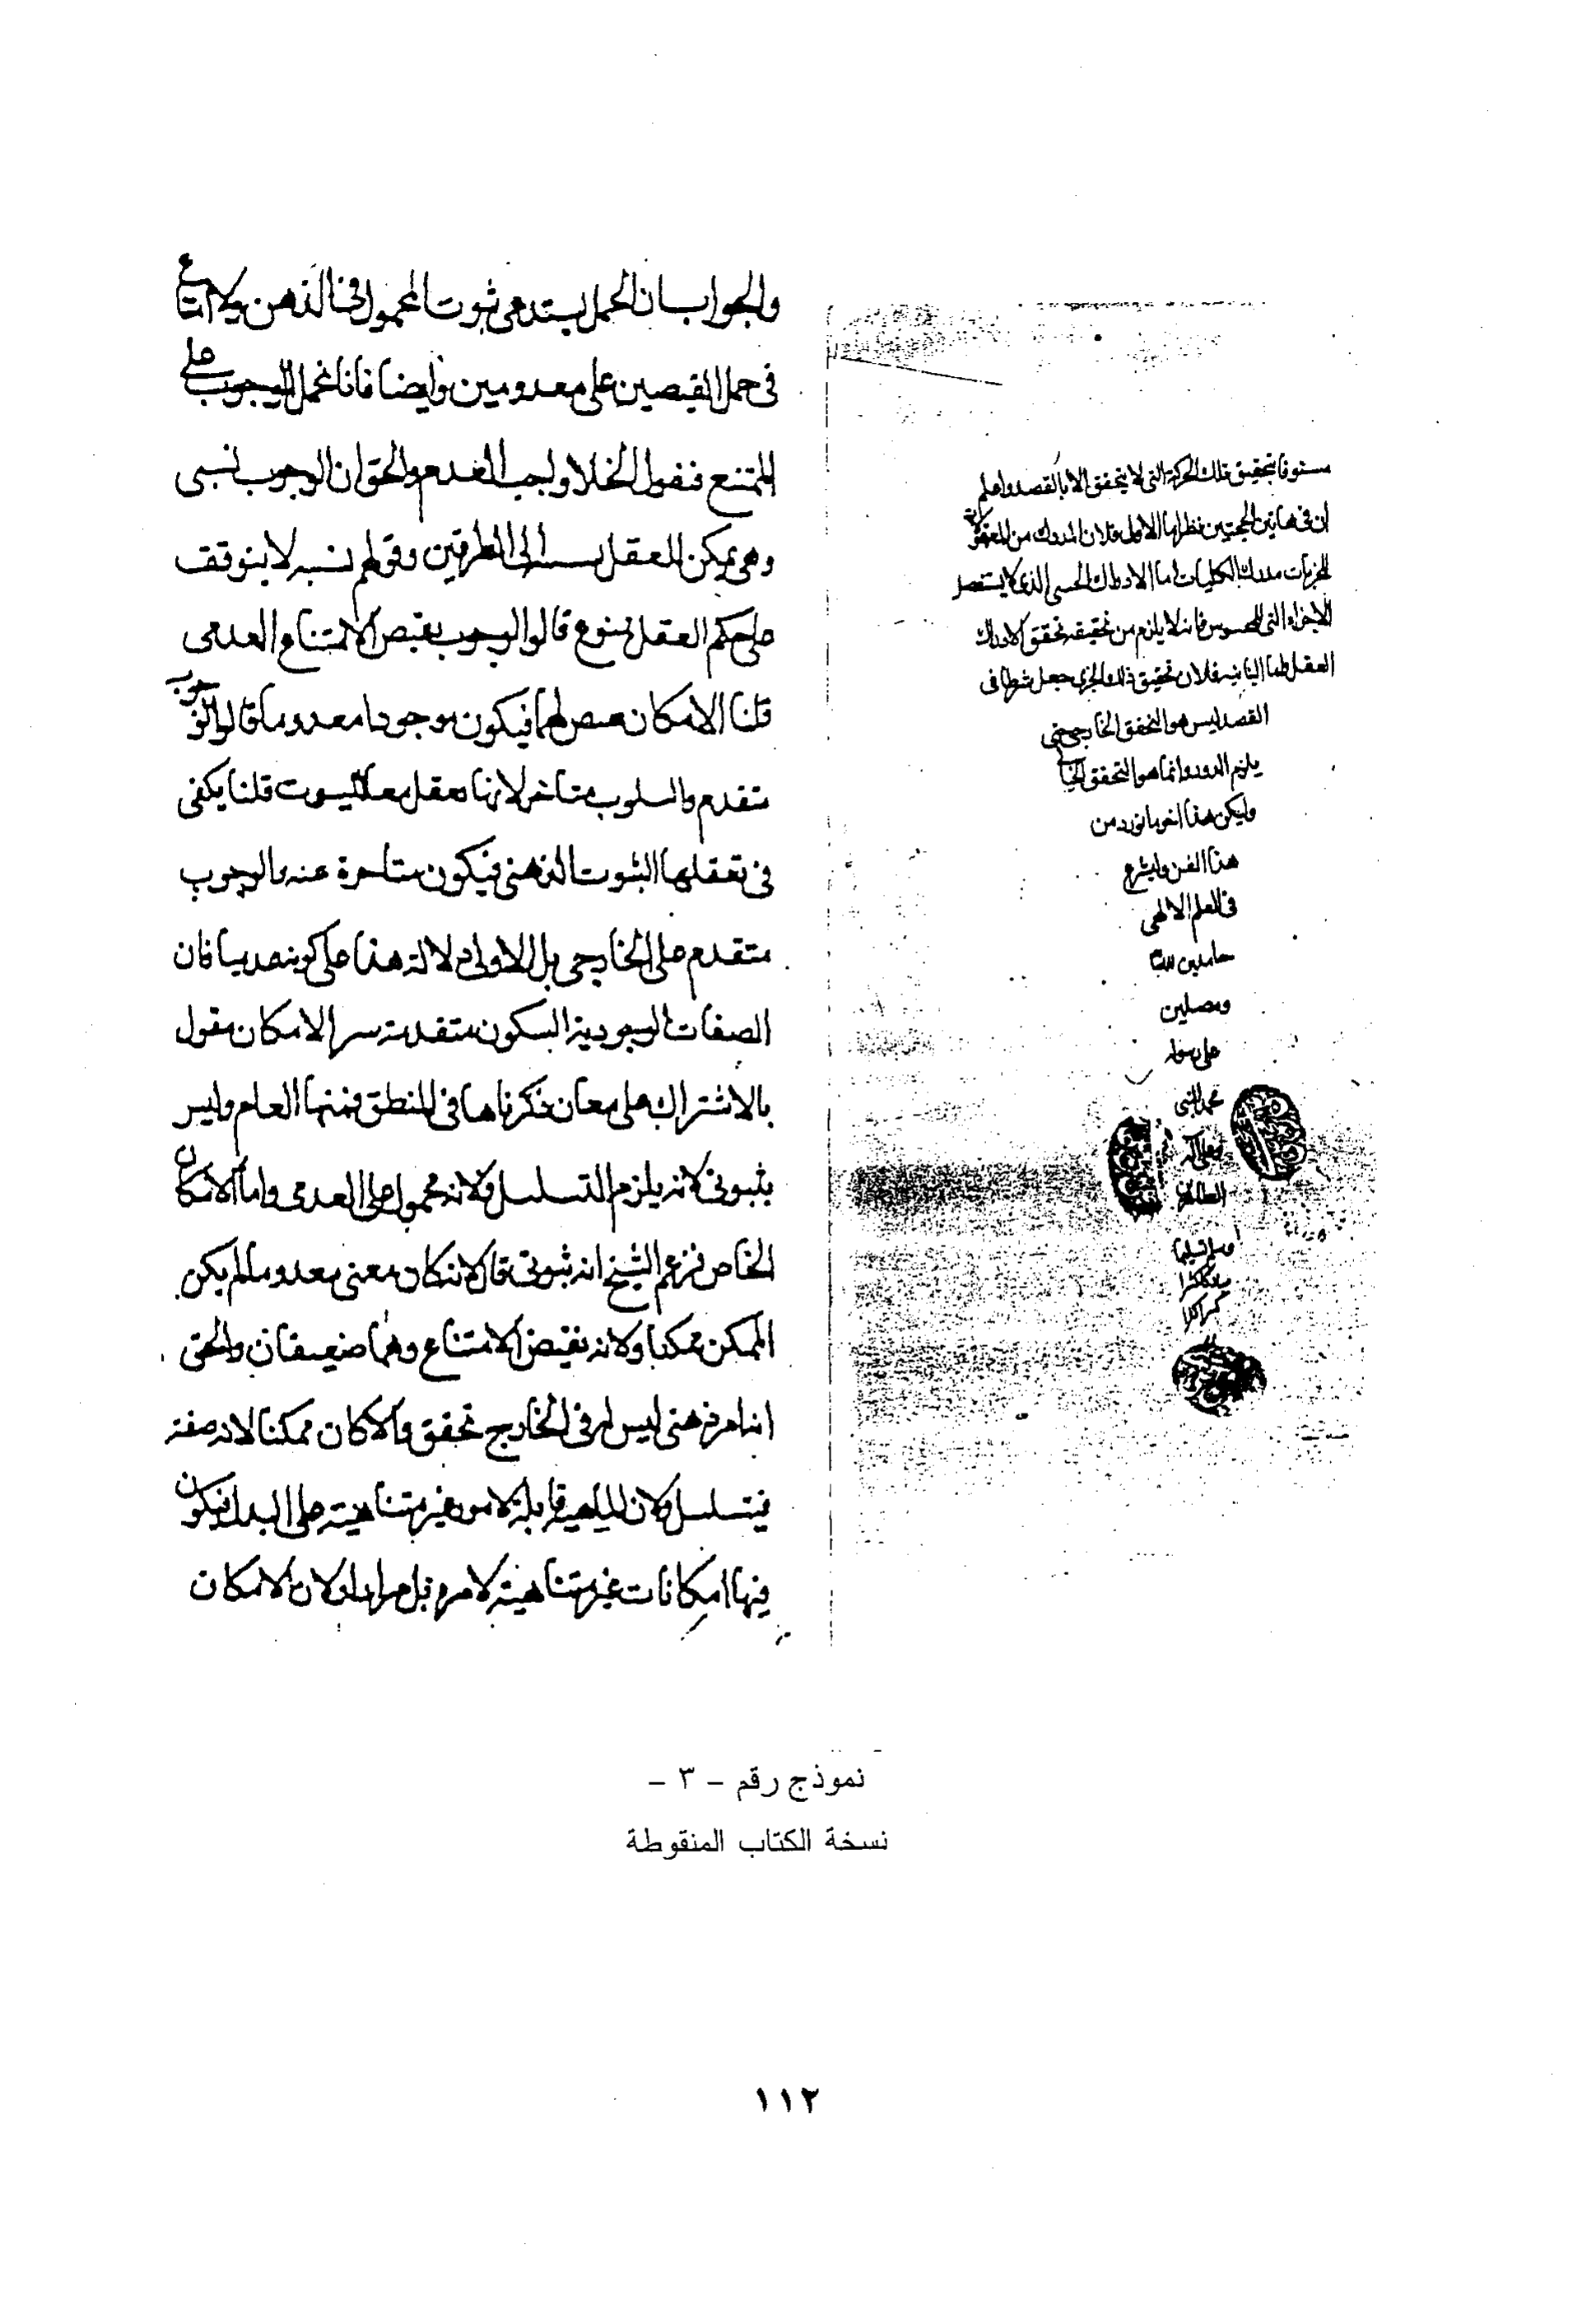 تحقيق تلك الحركة التي لا يتحقق الا بالقصد واعلم
ان في هاتين الحجتين نظرا اما الاولى فلان المدرك من
للجزيات مدرك الكليات اما الادراك الحسي الذي لا يستحصل
الاجزاء التي للمحسوس فانه لا يلزم من تحقيقه تحقق الادراك
العقلي واما الثانية فلان تحقيق ذلك الجزى جعل شرطا في
القصد ليس هو التحقق الخارجي حتى
يلزم الدور وانما هو التحقق
وليكن هذا اخر ما نورد من
هذا الفن ولنشرع
في العلم الالهي
حامدين لله
ومصلين
على رسوله
محمد النبي
وعلى اله
الطاهرين
وسلم تسليما
كثيرا
والجواب ان الحمل يستدعي ثبوت المحمول في الذهن ولا امتناع
في حمل النقيضين على معدومين وايضا فانا نحمل الوجوب على
الممتنع فنقول الخلا واجب العدم والحق ان الوجوب نسبي
وهي يمكن للعقل الى الطرفين وقولهم نسبه لا يتوقف
على حكم العقل ممنوع قالوا الوجوب نقيض الامتناع العدمي
قلنا الامكان نقيض لهما فيكون موجودا معدوما قالوا الوجوب
متقدم والسلوب متاخر لانها تعقل معا لثبوت قلنا يكفي
في تعقلها الثبوت الذهني فيكون متاخرة عنه والوجوب
متقدم على الخارجي بل الاولى دلالة هذا على كونه عدميا فان
الصفات الوجودية لا يكون متقدمة سر الامكان مقول
بالاشتراك على معان ذكرناها في المنطق فمنها العام وليس
بثبوتي لانه يلزم التسلسل ولانه محمول على العدمي واما الامكان
الخاص فزعم الشيخ انه ثبوتي قال لانه لو كان معنى معدوما لم يكن
الممكن ممكنا ولانه نقيض الامتناع وهما ضعيفان والحق
انه امر ذهني ليس له في الخارج تحقق والا كان ممكنا لانه صفة
فيتسلسل ولان الماهية قابلة لامور غير متناهية على البدل فيكون
فيها امكانات غير متناهية لا مرة بل مرارا ولان الامكان
نموذج رقم - ٣ -
نسخة الكتاب المنقوطة
١١٢